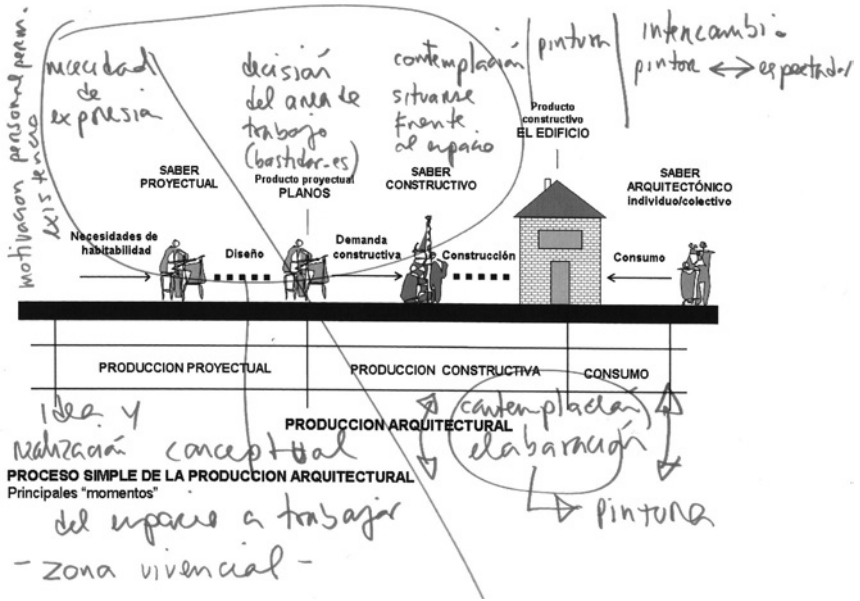 motivación personal perm.
existencia
necesidad
de
expresión
decisión
del area de
trabajo
(bastidor-es)
contemplación
situarse
frente
al espacio
pintura
intercambio
pintor ↔ espectador
Producto
constructivo
EL EDIFICIO
SABER
PROYECTUAL
Producto proyectual
PLANOS
SABER
CONSTRUCTIVO
SABER
ARQUITECTÓNICO
individuo/colectivo
Necesidades de
habitabilidad
Diseño
Demanda
constructiva
Construcción
Consumo
PRODUCCION PROYECTUAL
PRODUCCION CONSTRUCTIVA
CONSUMO
PRODUCCION ARQUITECTURAL
idea y
realización conceptual
contemplación
elabaración
PROCESO SIMPLE DE LA PRODUCCION ARQUITECTURAL
Principales "momentos"
pintura
del espacio a trabajar
- zona vivencial -